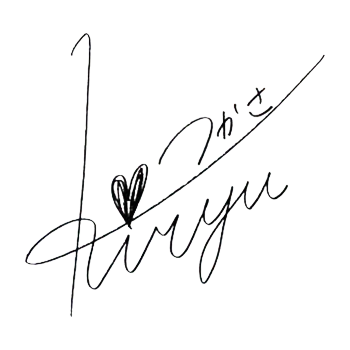 つかさ
Kiryu